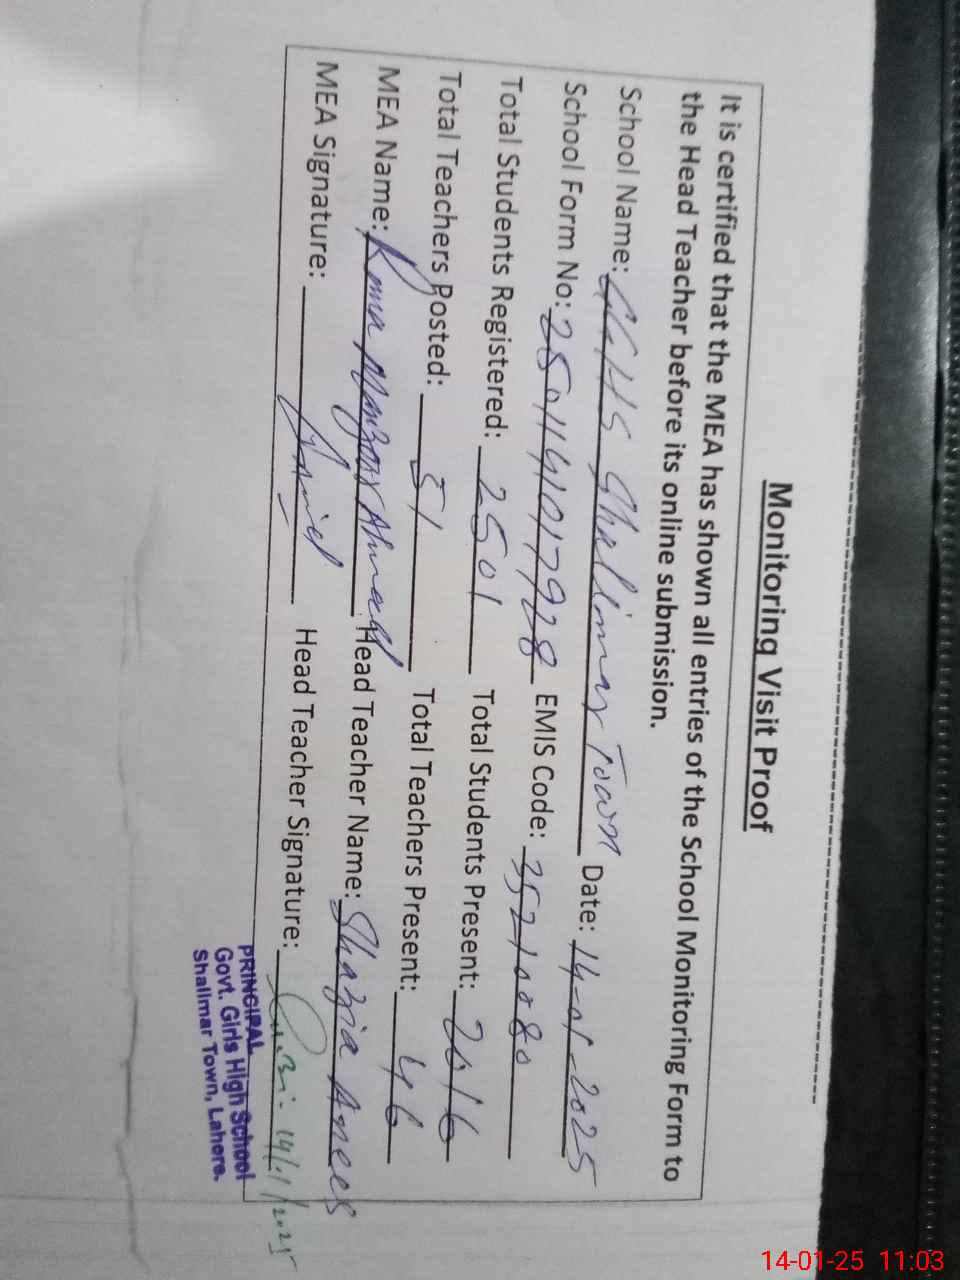 Monitoring Visit Proof
It is certified that the MEA has shown all entries of the School Monitoring Form to
the Head Teacher before its online submission.
School Name: GGHS Shalimar Town Date: 14-01-2025
School Form No: 2501141017928 EMIS Code: 35210080
Total Students Registered: 2501 Total Students Present: 2416
Total Teachers Posted: 51 Total Teachers Present: 46
MEA Name: Rana Manzoor Ahmad Head Teacher Name: Shazia Anees
MEA Signature: Head Teacher Signature: 14/1/2025
PRINCIPAL
Govt. Girls High School
Shalimar Town, Lahore.
14-01-25 11:03